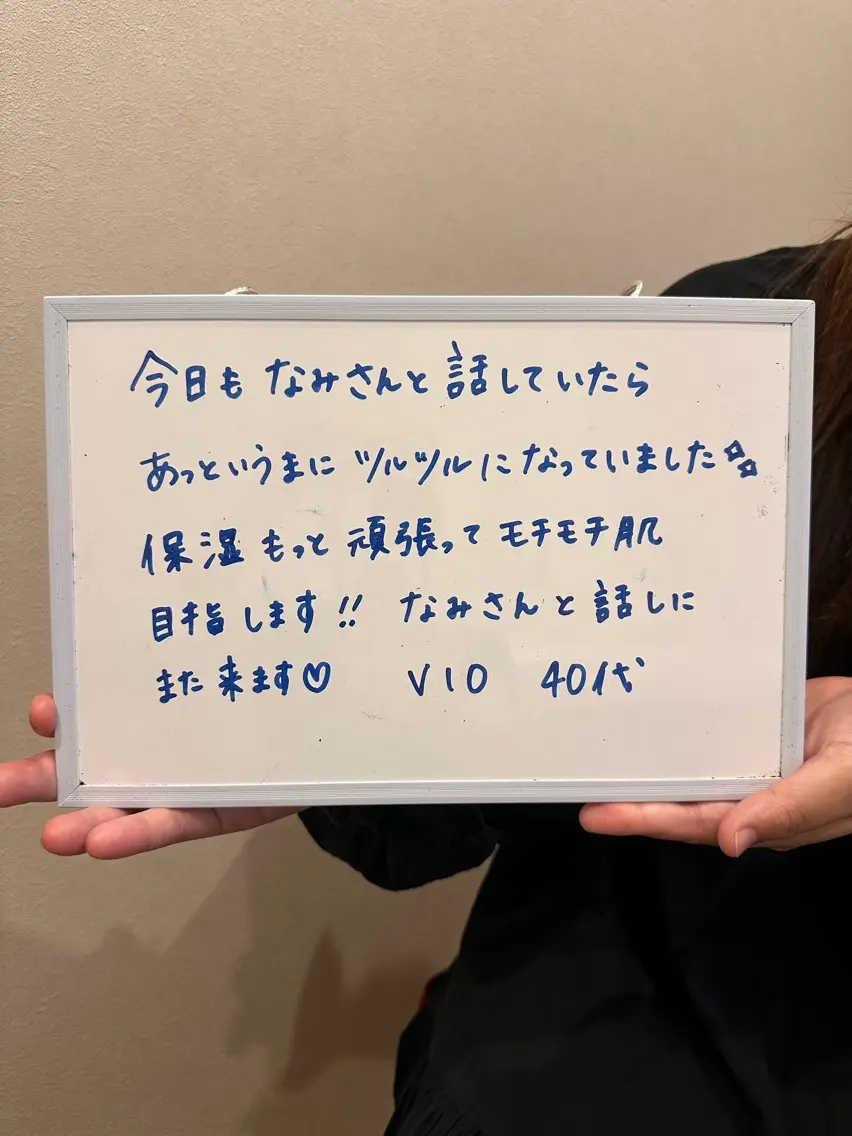 今日も なみさんと 話していたら
あっというまに ツルツルに なっていました
保湿 もっと 頑張って モチモチ肌
目指します!! なみさんと 話しに
また 来ます♡ VIO 40代